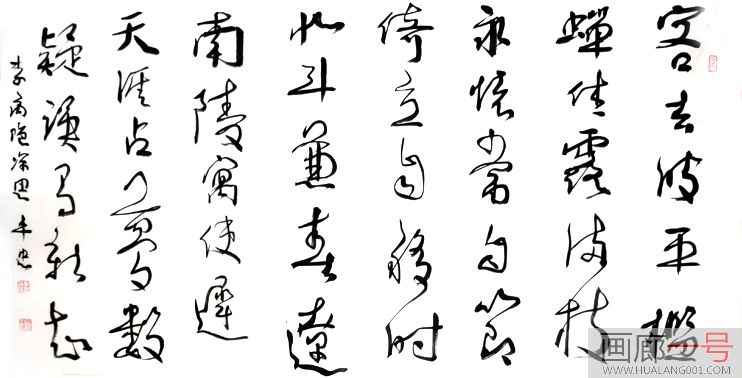 客去波平檻
蟬休露满枝
永懷當此節
倚立自移时
北斗兼春遠
南陵寓使遲
天涯占夢數
疑誤有新知
李商隐凉思
画廊一号
WWW.HUALANG001.COM